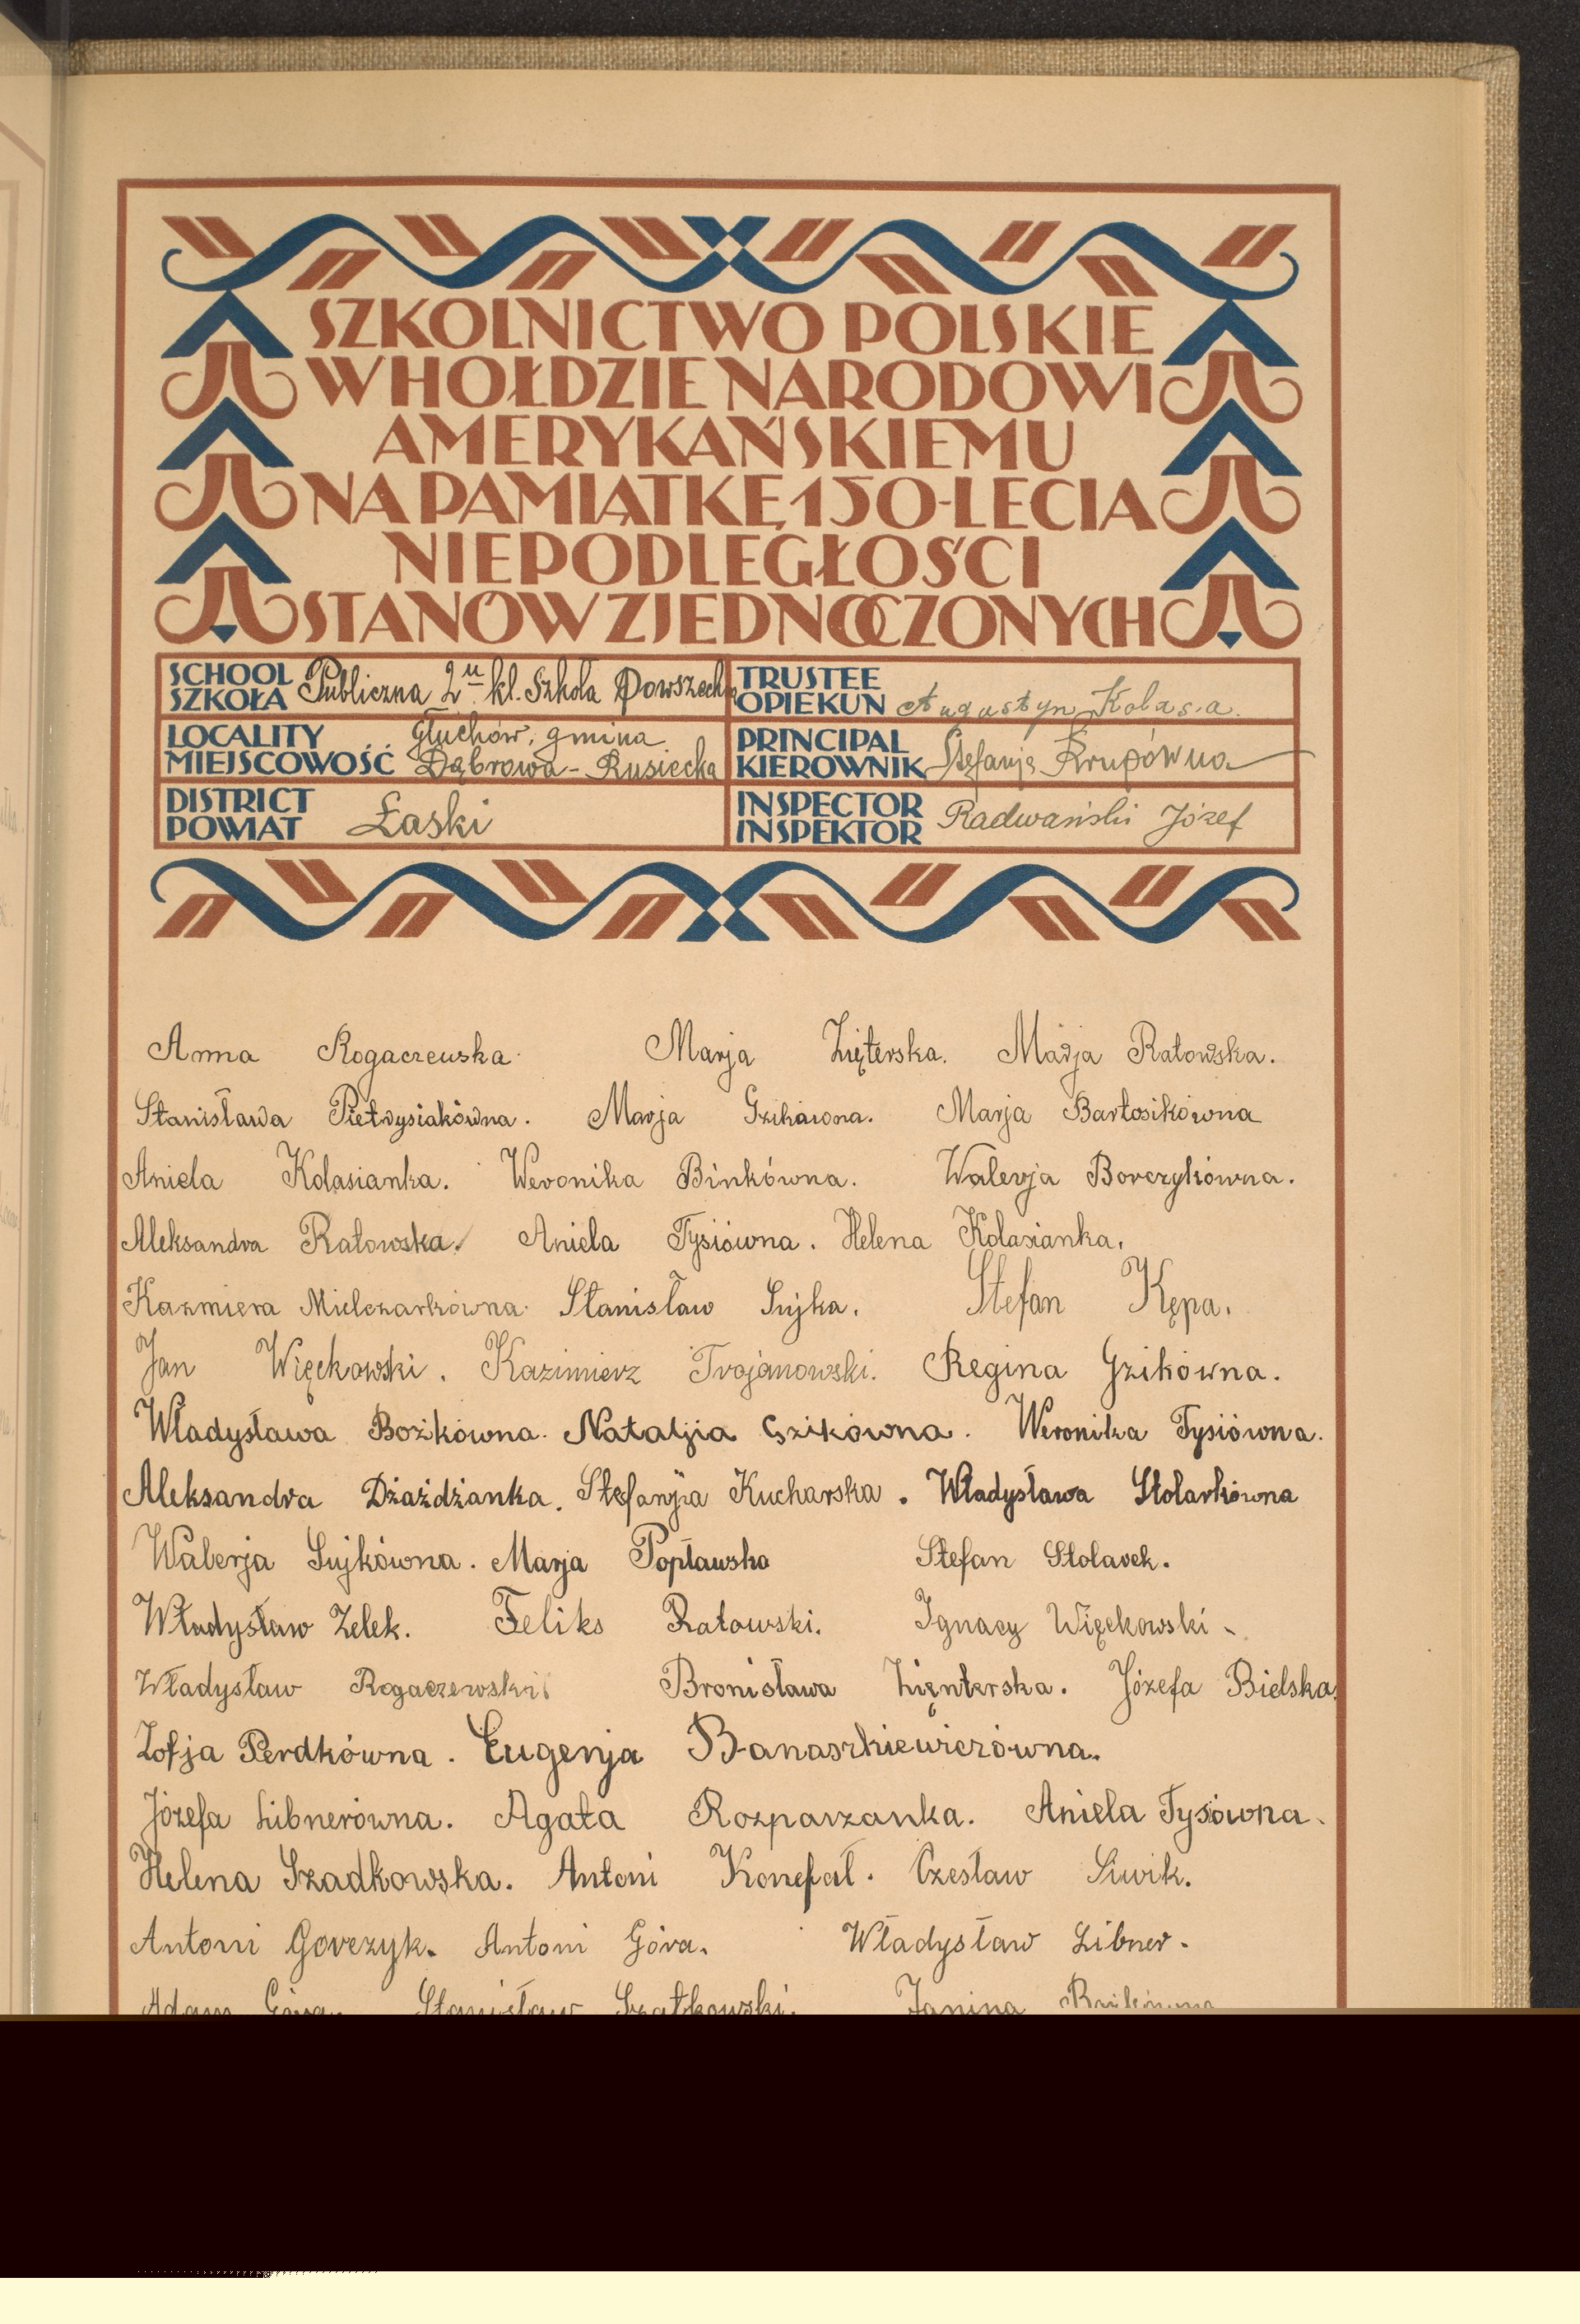 SZKOLNICTWO POLSKIE
W HOŁDZIE NARODOWI
AMERYKAŃSKIEMU
NA PAMIĄTKĘ 150-LECIA
NIEPODLEGŁOŚCI
STANÓW ZJEDNOCZONYCH
SCHOOL
SZKOŁA Publiczna 2u kl. Szkoła Powszech
TRUSTEE
OPIEKUN Augustyn Kolasa.
LOCALITY Głuchów, gmina
MIEJSCOWOŚĆ Dąbrowa - Rusiecka
PRINCIPAL
KIEROWNIK Stefanja Krupówna
DISTRICT
POWIAT Łaski
INSPECTOR
INSPEKTOR Radwański Józef
Anna Rogaczewska. Marja Zięterska. Marja Ratowska.
Stanisława Pietrysiakówna. Marja Gzikówna. Marja Bartosikówna
Aniela Kolasianka. Weronika Binkówna. Walerja Borczykówna.
Aleksandra Ratowska. Aniela Tysiówna. Helena Kolasianka.
Kazmiera Mielczarkówna. Stanisław Sujka. Stefan Kępa.
Jan Więckowski. Kazimierz Trojanowski. Regina Gzikówna.
Władysława Bożkówna. Natalja Gzikówna. Weronika Tysiówna.
Aleksandra Dżażdżanka. Stefanja Kucharska. Władysława Stolarkówna
Walerja Sujkówna. Marja Popławska Stefan Stolarek.
Władysław Zelek. Feliks Ratowski. Ignacy Więckowski.
Władysław Rogaczewski. Bronisława Zięnterska. Józefa Bielska.
Zofja Perdkówna. Eugenja Banaszkiewiczówna.
Józefa Libnerówna. Agata Rozparzanka. Aniela Tysówna.
Helena Szadkowska. Antoni Konefał. Czesław Siwik.
Antoni Gorczyk. Antoni Góra. Władysław Libner.
Adam Góra. Stanisław Szatkowski. Janina